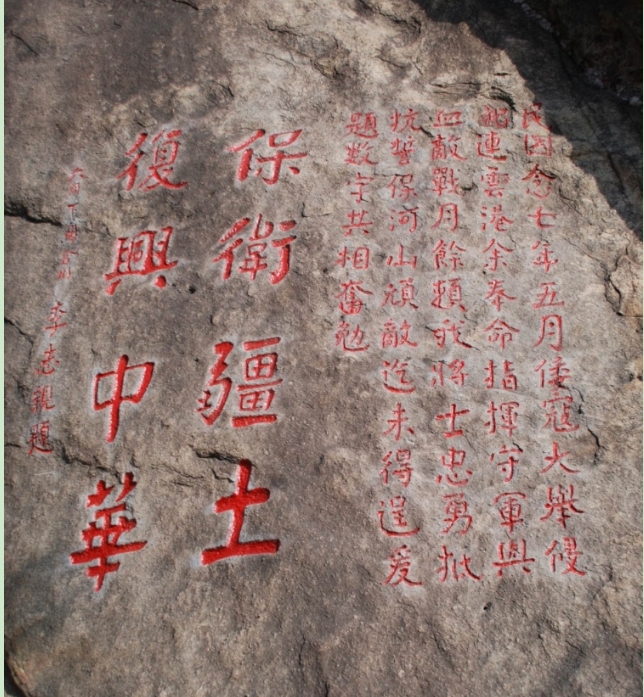 民國念七年五月倭寇大舉侵
連雲港余奉命指揮守軍與
血敵戰月餘賴我將士忠勇抵
抗誓保河山頑敵迄未得逞爰
題數字共相奮勉
保衛疆土
復興中華
李志親題